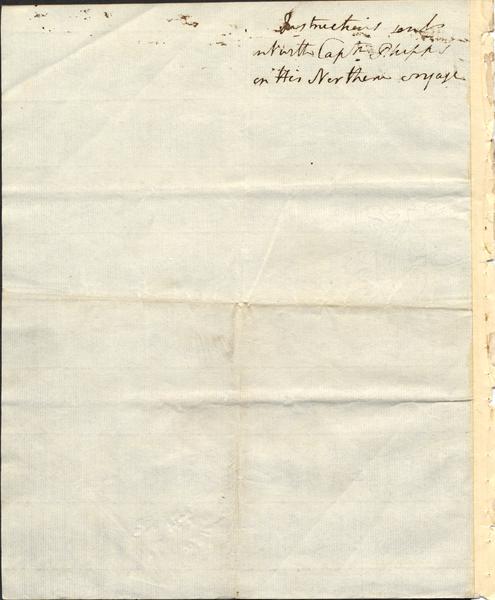 Instructions sent
with Capt. Phipps
on His Northern voyage